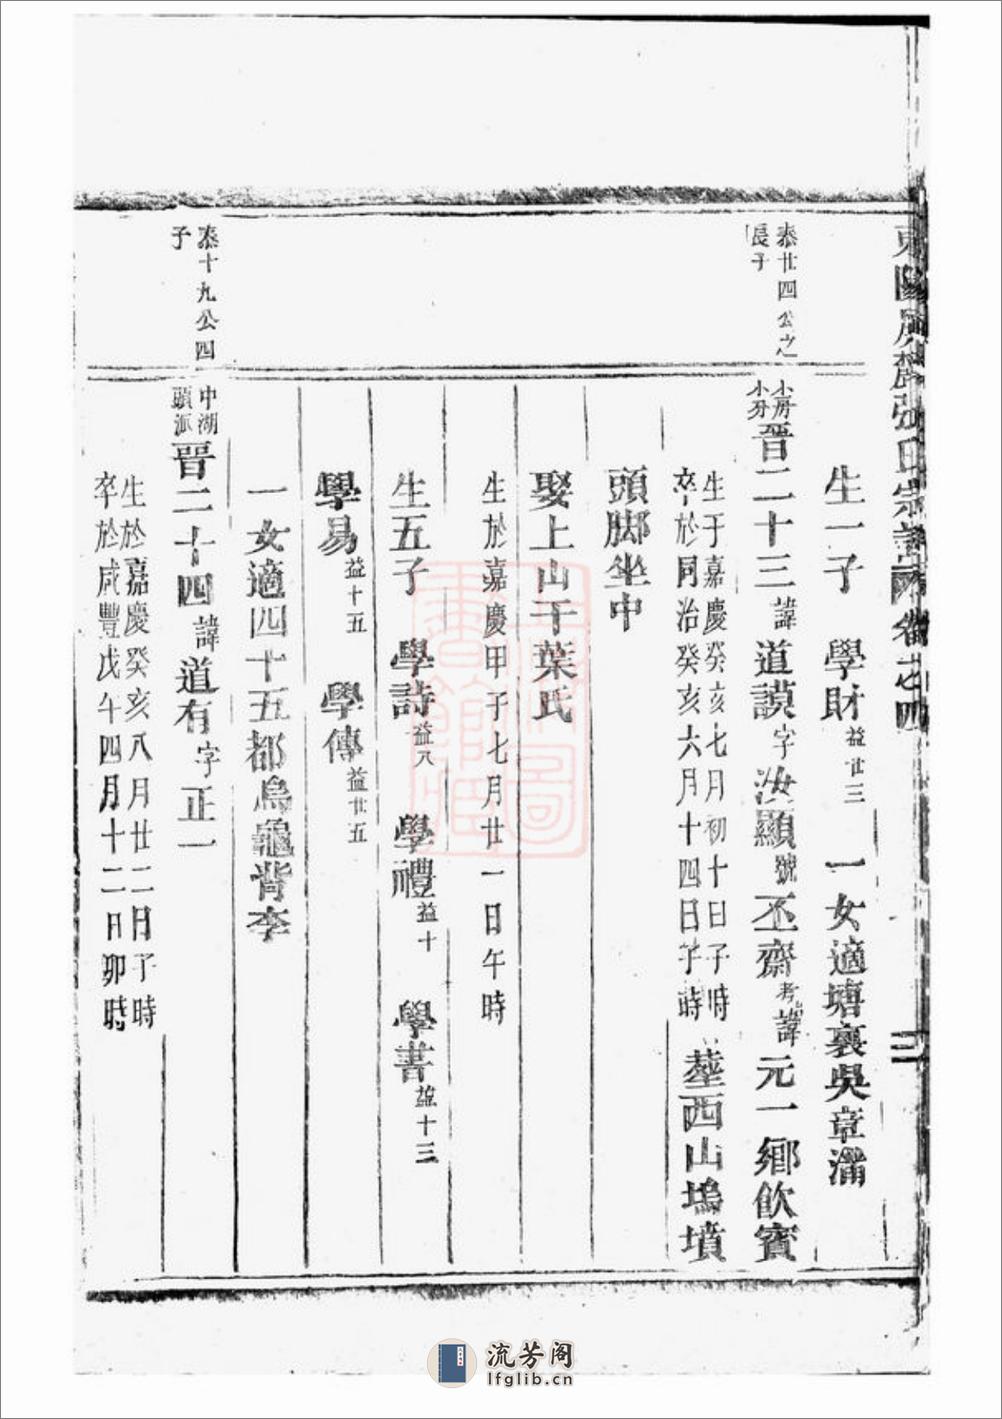 東陽
張氏宗譜
卷之四
三
生一子 學財益廿三 一女適塘裏吳章
泰廿四公之
長子
小房
小分
晉二十三諱道謨字汝顯號丕齋考諱元一鄉飲賓
生于嘉慶癸亥七月初十日子時
卒於同治癸亥六月十四日子時
塟西山塢墳
頭脚坐中
娶上山干葉氏
生於嘉慶甲子七月廿一日午時
生五子 學詩益八 學禮益十 學書益十三
學易益十五 學傳益廿五
一女適四十五都烏龜背李
泰十九公四
子
中湖
頭派
晉二十四諱道有字正一
生於嘉慶癸亥八月廿二日子時
卒於咸豐戊午四月十二日卯時
流芳阁
lfglib.cn